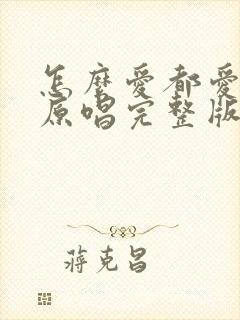 怎麼愛都愛
原唱完整版
蔣克昌